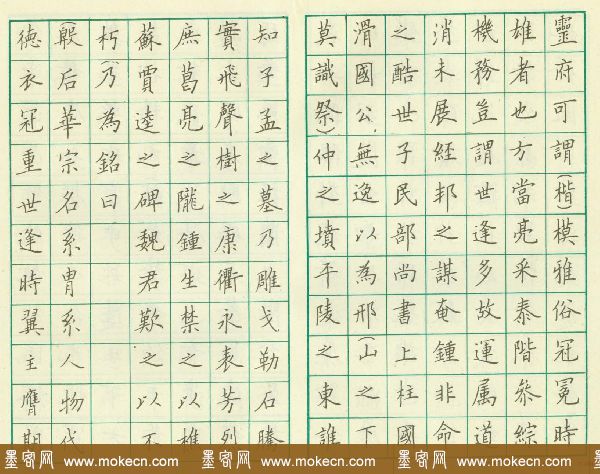 靈府可謂(楷)模雅俗冠冕時
雄者也方當亮采泰階參綜
機務豈謂世逢多故運属道
消未展經邦之謀奄鍾非命
之酷世子民部尚書上柱國
滑國公無逸以為邢(山之下
莫識祭)仲之墳平陵之東誰
知子孟之墓乃雕戈勒石騰
實飛聲樹之康衢永表芳烈
庶葛亮之隴鍾生禁之以樵
蘇賈逵之碑魏君歎之以不
朽)乃為銘曰
(殷后華宗名系胄系人物代
德衣冠重世逢時翼主膺期
墨客网 www.mokecn.com 墨客网 www.mokecn.com 墨客网 www.mokecn.com